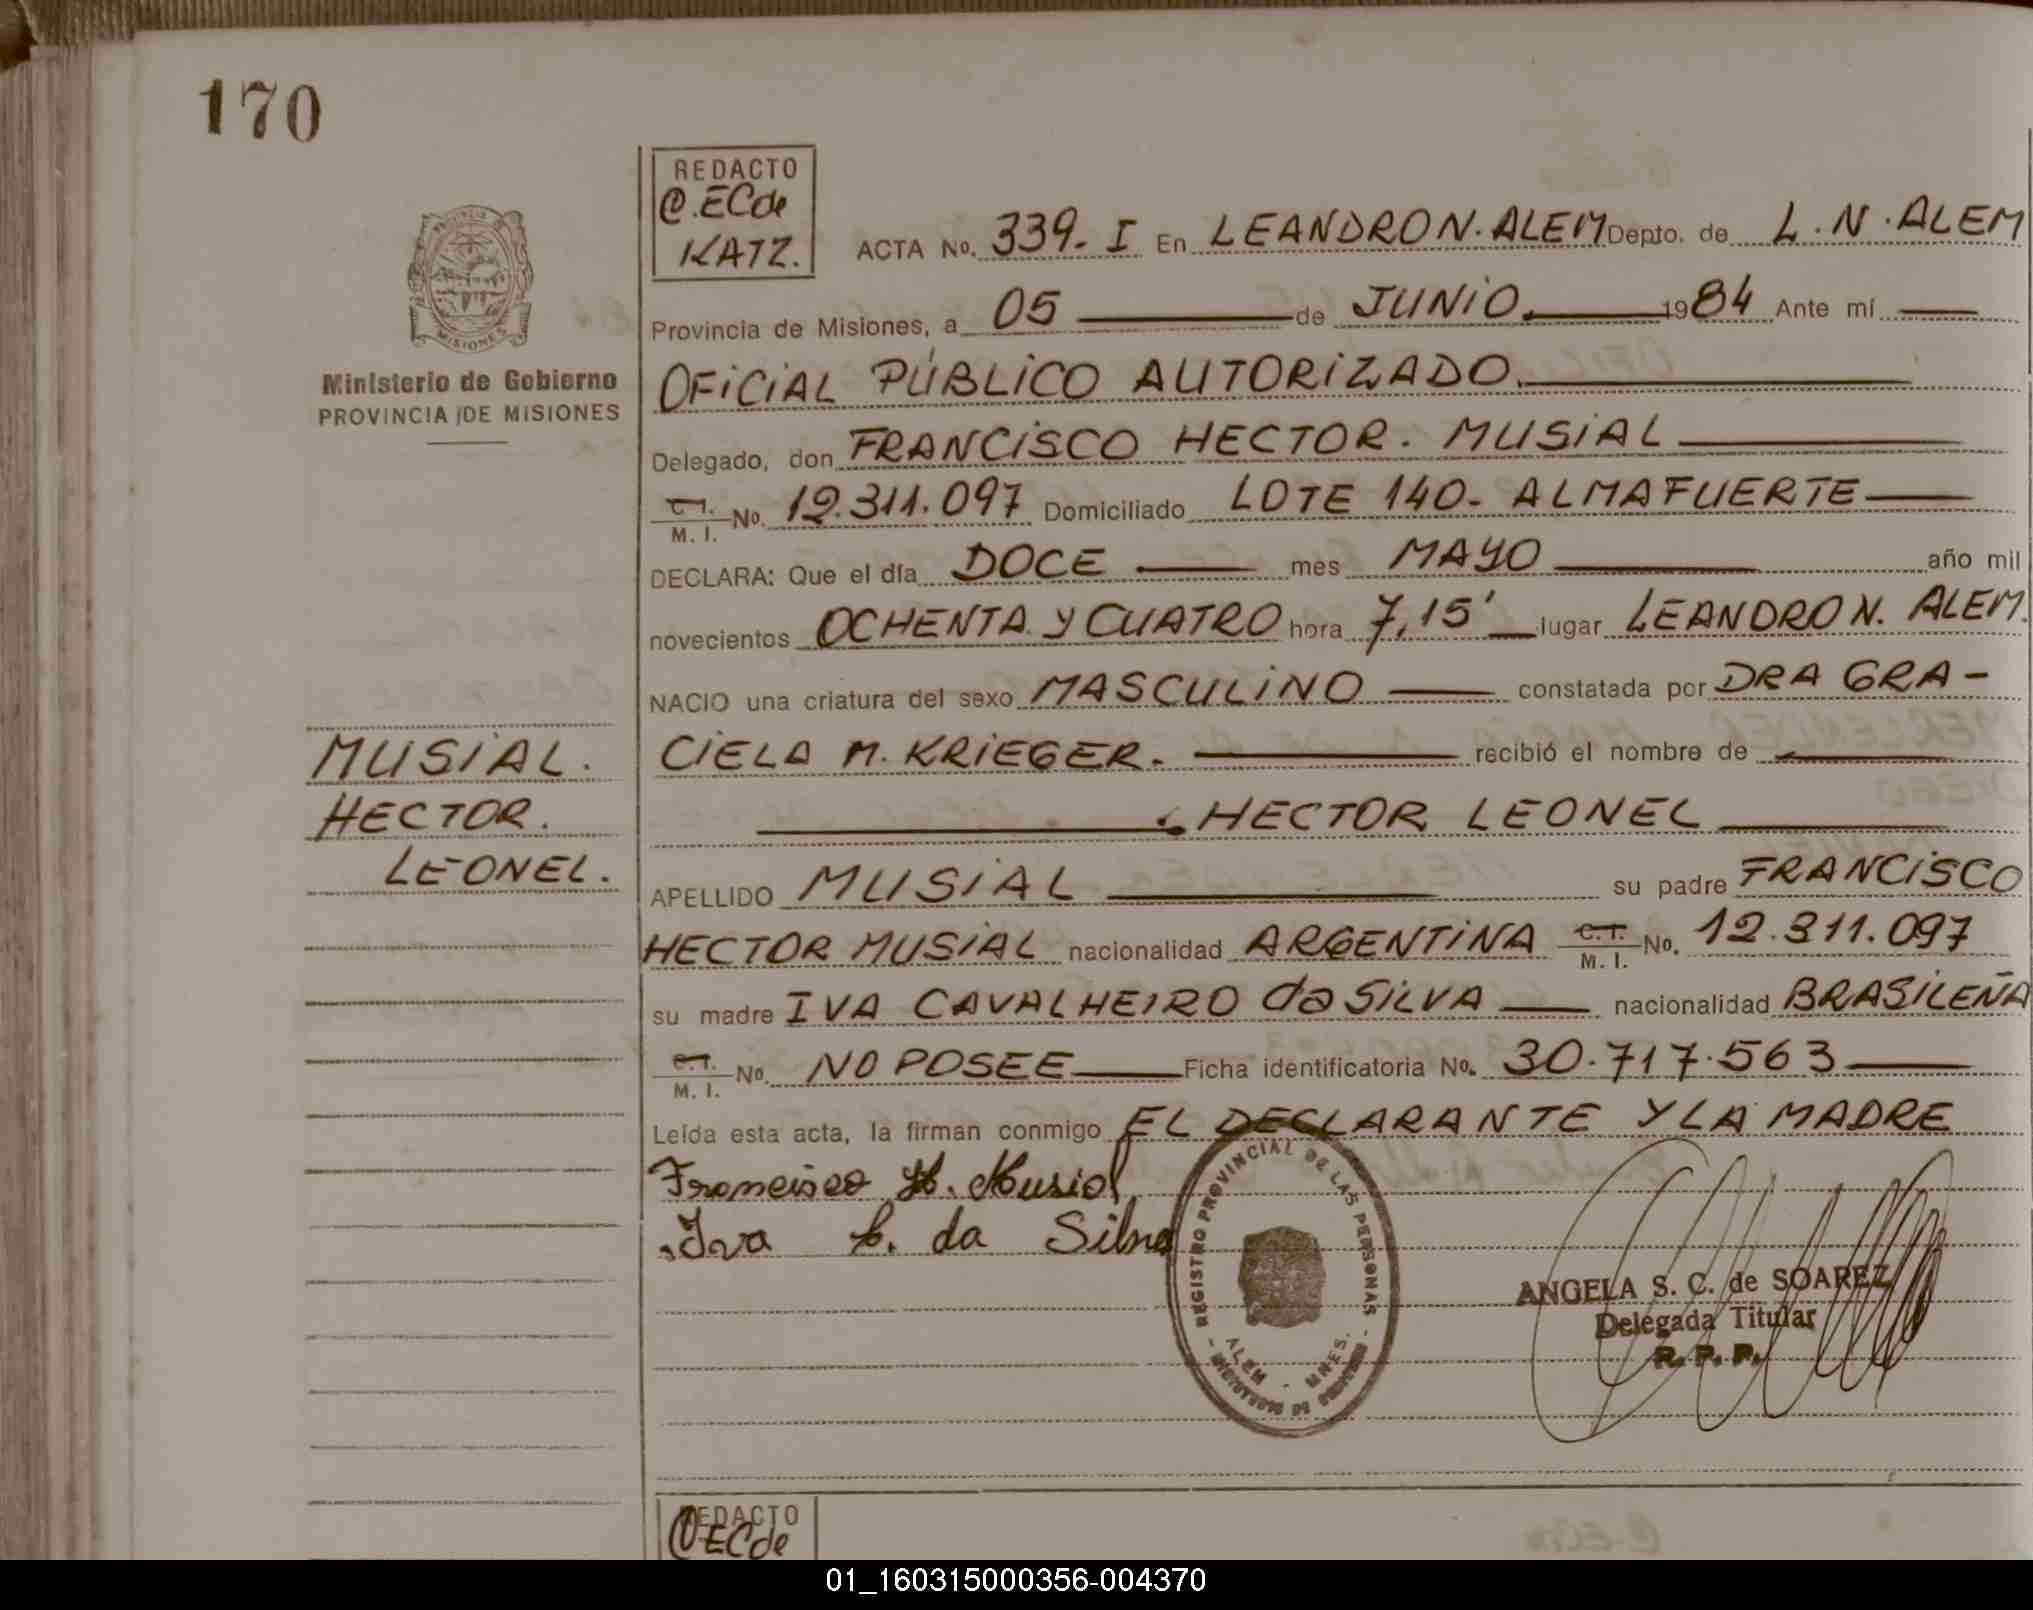 170
REDACTO
C. EC de
KATZ.
ACTA No. 339. I En LEANDRO N. ALEM Depto. de L. N. ALEM
Provincia de Misiones, a 05 de JUNIO. 1984 Ante mí
OFICIAL PÚBLICO AUTORIZADO.
Delegado, don FRANCISCO HECTOR. MUSIAL
C. I.
M. I. No. 12.311.097 Domiciliado LOTE 140- ALMAFUERTE
DECLARA: Que el día DOCE mes MAYO año mil
novecientos OCHENTA Y CUATRO hora 7,15' lugar LEANDRO N. ALEM.
NACIO una criatura del sexo MASCULINO constatada por DRA GRA-
CIELA M. KRIEGER. recibió el nombre de
HECTOR LEONEL
APELLIDO MUSIAL su padre FRANCISCO
HECTOR MUSIAL nacionalidad ARGENTINA C. I. M. I. No. 12.311.097
su madre IVA CAVALHEIRO da SILVA nacionalidad BRASILEÑA
C. I.
M. I. No. NO POSEE Ficha identificatoria No. 30.717.563
Leída esta acta, la firman conmigo EL DECLARANTE Y LA MADRE
Francisco H. Musial
Iva C. da Silva
PROVINCIA
MISIONES
Ministerio de Gobierno
PROVINCIA DE MISIONES
MUSIAL.
HECTOR.
LEONEL.
REGISTRO PROVINCIAL DE LAS PERSONAS
ALEM - MNES.
MINISTERIO DE GOBIERNO
ANGELA S. C. de SOAREZ
Delegada Titular
R. P. P.
REDACTO
C. EC de
01_160315000356-004370